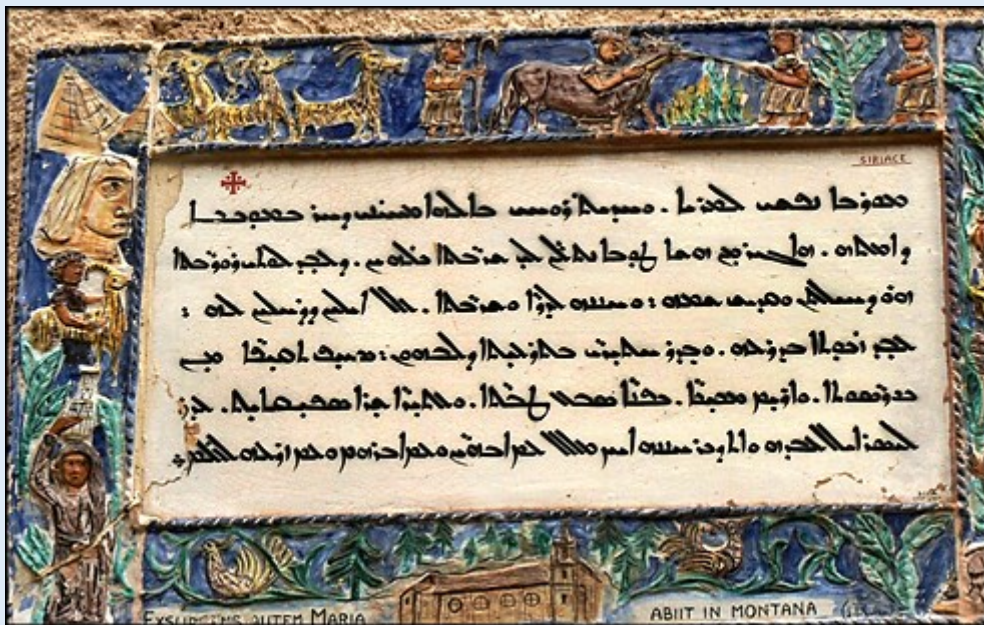 SIRIACE
ܡܘܪܒܐ ܢܦܫܝ ܠܡܪܝܐ. ܘܚܕܝܬ ܪܘܚܝ ܒܐܠܗܐ ܡܚܝܢܝ ܕܚܪ ܒܡܘܟܟܐ
ܕܐܡܬܗ. ܗܐ ܓܝܪ ܡܢ ܗܫܐ ܛܘܒܐ ܢܬܠܢ ܠܝ ܫܪܒܬܐ ܟܠܗܝܢ. ܕܥܒܕ ܠܘܬܝ ܪܘܪܒܬܐ
ܗܘ ܕܚܝܠܬܢ ܘܩܕܝܫ ܫܡܗ: ܘܚܢܢܗ ܠܕܪܐ ܘܫܪܒܬܐ. ܥܠ ܐܝܠܝܢ ܕܕܚܠܝܢ ܠܗ:
ܥܒܕ ܙܟܘܬܐ ܒܕܪܥܗ. ܘܒܕܪ ܚܬܝܪܝ ܒܬܪܥܝܬܐ ܕܠܒܗܘܢ: ܣܚܦ ܬܩܝܦܐ ܡܢ
ܟܘܪܣܘܬܐ. ܘܐܪܝܡ ܡܟܝܟܐ. ܟܦܢܐ ܣܒܥ ܛܒܬܐ. ܘܥܬܝܪܐ ܫܪܐ ܣܦܝܩܐܝܬ. ܥܕܪ
ܠܝܣܪܐܝܠ ܥܒܕܗ ܘܐܬܕܟܪ ܚܢܢܗ ܐܝܟ ܕܡܠܠ ܥܡ ܐܒܗܝܢ ܘܥܡ ܐܒܪܗܡ ܘܥܡ ܙܪܥܗ ܠܥܠܡ
EXSURGENS AUTEM MARIA
ABIIT IN MONTANA